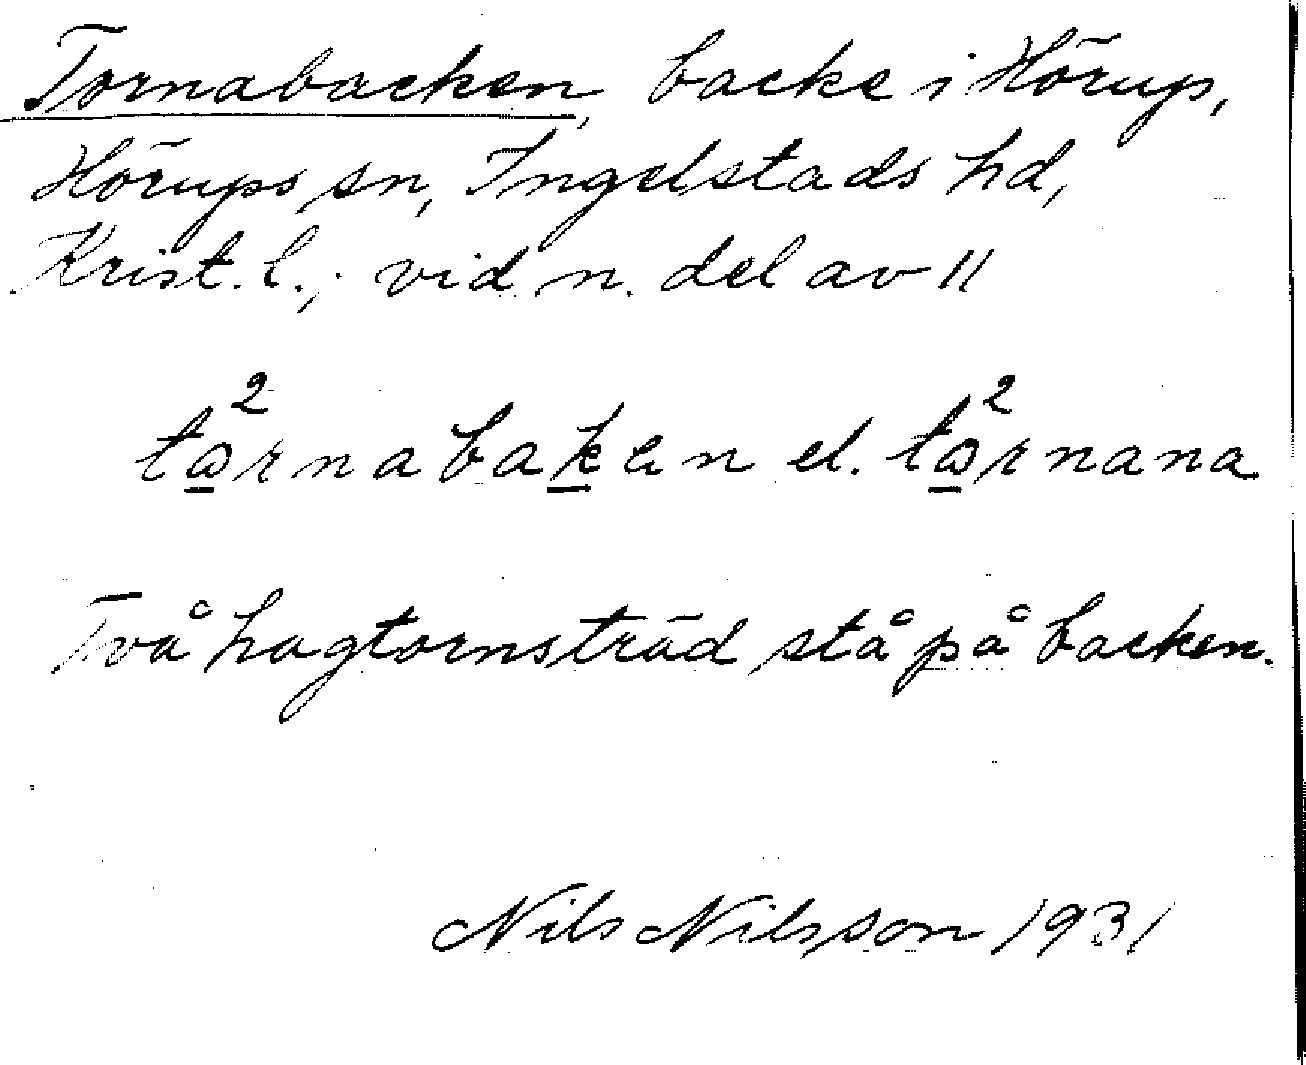 Tornabacken, backe i Hörup,
Hörups sn, Ingelstads hd,
Krist. l.; vid n. del av 11
tɷ̲²rnabak̲en el. tɷ̲²rnana
Två hagtornsträd stå på backen.
Nils Nilsson 1931